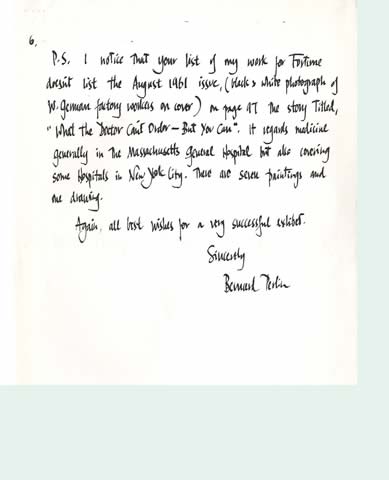 6.
P.S. I notice that your list of my work for Fortune
doesn't list the August 1961 issue, (black & white photograph of
W. German factory workers on cover) on page 97 the story titled,
"What the Doctor Can't Order - But You Can". It regards medicine
generally in the Massachusetts General Hospital but also covering
some Hospitals in New York City. There are seven paintings and
one drawing.
Again, all best wishes for a very successful exhibit.
Sincerely
Bernard Perlin